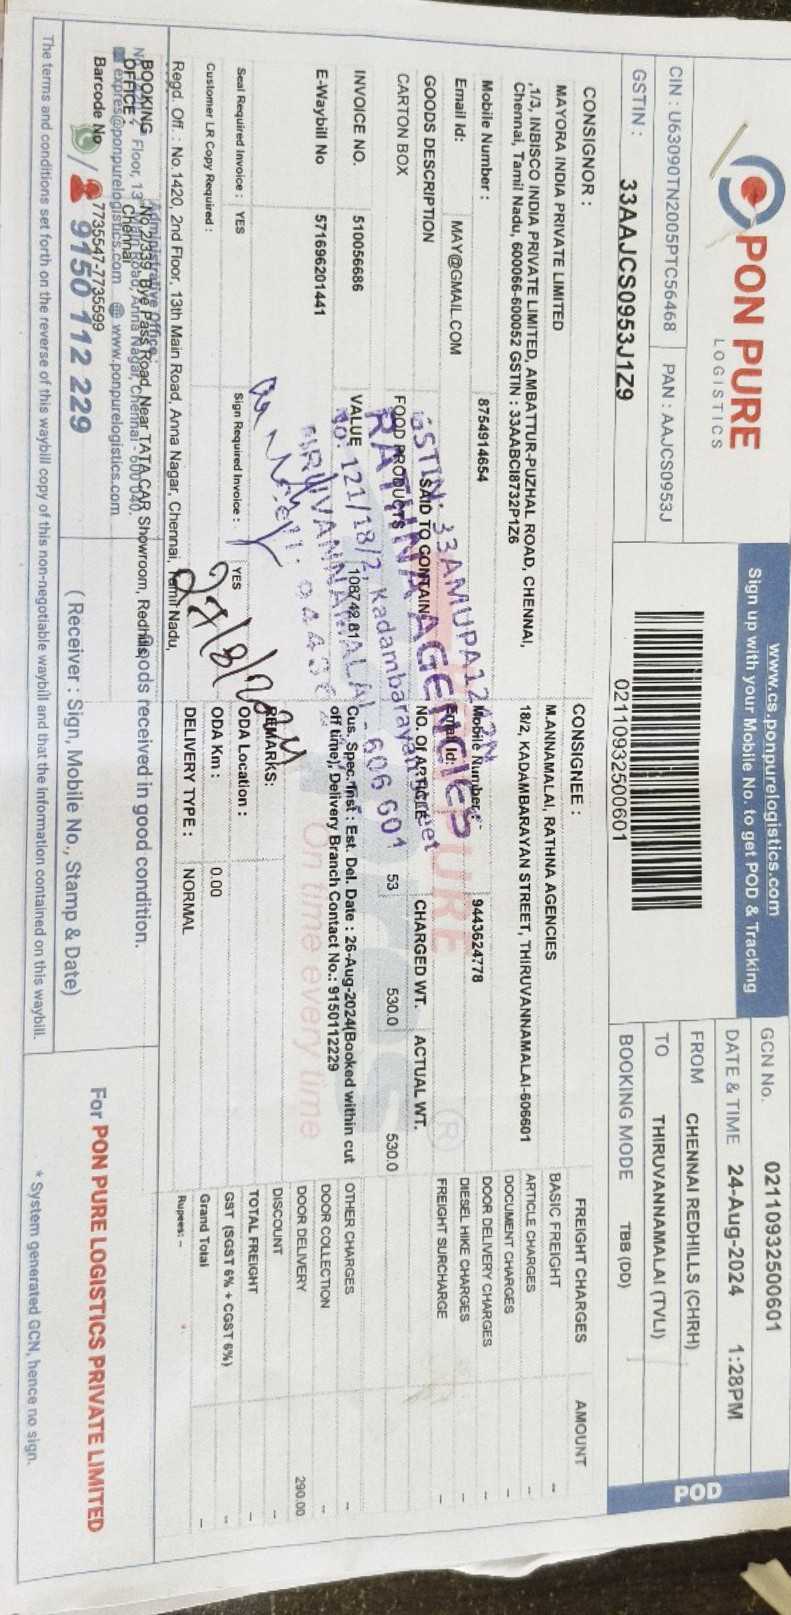 PON PURE
LOGISTICS
CIN : U63090TN2005PTC56468
PAN : AAJCS0953J
GSTIN :
33AAJCS0953J1Z9
www.cs.ponpurelogistics.com
Sign up with your Mobile No. to get POD & Tracking
02110932500601
GCN No.
02110932500601
DATE & TIME
24-Aug-2024
1:28PM
FROM
CHENNAI REDHILLS (CHRH)
TO
THIRUVANNAMALAI (TVLI)
BOOKING MODE
TBB (DD)
POD
CONSIGNOR :
MAYORA INDIA PRIVATE LIMITED
,1/3, INBISCO INDIA PRIVATE LIMITED, AMBATTUR-PUZHAL ROAD, CHENNAI,
Chennai, Tamil Nadu, 600066-600052 GSTIN : 33AABCI8732P1Z6
Mobile Number :
8754914654
Email Id:
MAY@GMAIL.COM
CONSIGNEE :
M.ANNAMALAI, RATHNA AGENCIES
18/2, KADAMBARAYAN STREET, THIRUVANNAMALAI-606601
Mobile Number :
9443624778
Email Id:
GOODS DESCRIPTION
SAID TO CONTAIN
NO. Of ARTICLE
CHARGED WT.
ACTUAL WT.
CARTON BOX
FOOD PRODUCTS
53
530.0
530.0
INVOICE NO.
510056686
VALUE
108742.81
Cus. Spec. Inst : Est. Del. Date : 26-Aug-2024(Booked within cut
off time), Delivery Branch Contact No.: 9150112229
E-Waybill No
571696201441
REMARKS:
Seal Required Invoice :
YES
Sign Required Invoice :
YES
ODA Location :
Customer LR Copy Required :
ODA Km :
0.00
DELIVERY TYPE :
NORMAL
FREIGHT CHARGES
AMOUNT
BASIC FREIGHT
--
ARTICLE CHARGES
--
DOCUMENT CHARGES
--
DOOR DELIVERY CHARGES
--
DIESEL HIKE CHARGES
--
FREIGHT SURCHARGE
--
OTHER CHARGES
--
DOOR COLLECTION
--
DOOR DELIVERY
290.00
DISCOUNT
--
TOTAL FREIGHT
--
GST (SGST 6% + CGST 6%)
--
Grand Total
--
Rupees: --
RATHNA AGENCIES
No: 121/18/2, Kadambarayan Street
TIRUVANNAMALAI - 606 601
On time every time
27/8/2024
Regd. Off. : No. 1420, 2nd Floor, 13th Main Road, Anna Nagar, Chennai, Tamil Nadu,
BOOKING
OFFICE :
No.2/339, Bye Pass Road, Near TATA CAR Showroom, Redhills,
Chennai
Administrative Office :
Floor, 13th Main Road, Anna Nagar, Chennai - 600 040.
expres@ponpurelogistics.com
www.ponpurelogistics.com
Barcode No
7735547-7735599
9150 112 229
Goods received in good condition.
( Receiver : Sign, Mobile No., Stamp & Date)
For PON PURE LOGISTICS PRIVATE LIMITED
The terms and conditions set forth on the reverse of this waybill copy of this non-negotiable waybill and that the information contained on this waybill.
* System generated GCN, hence no sign.